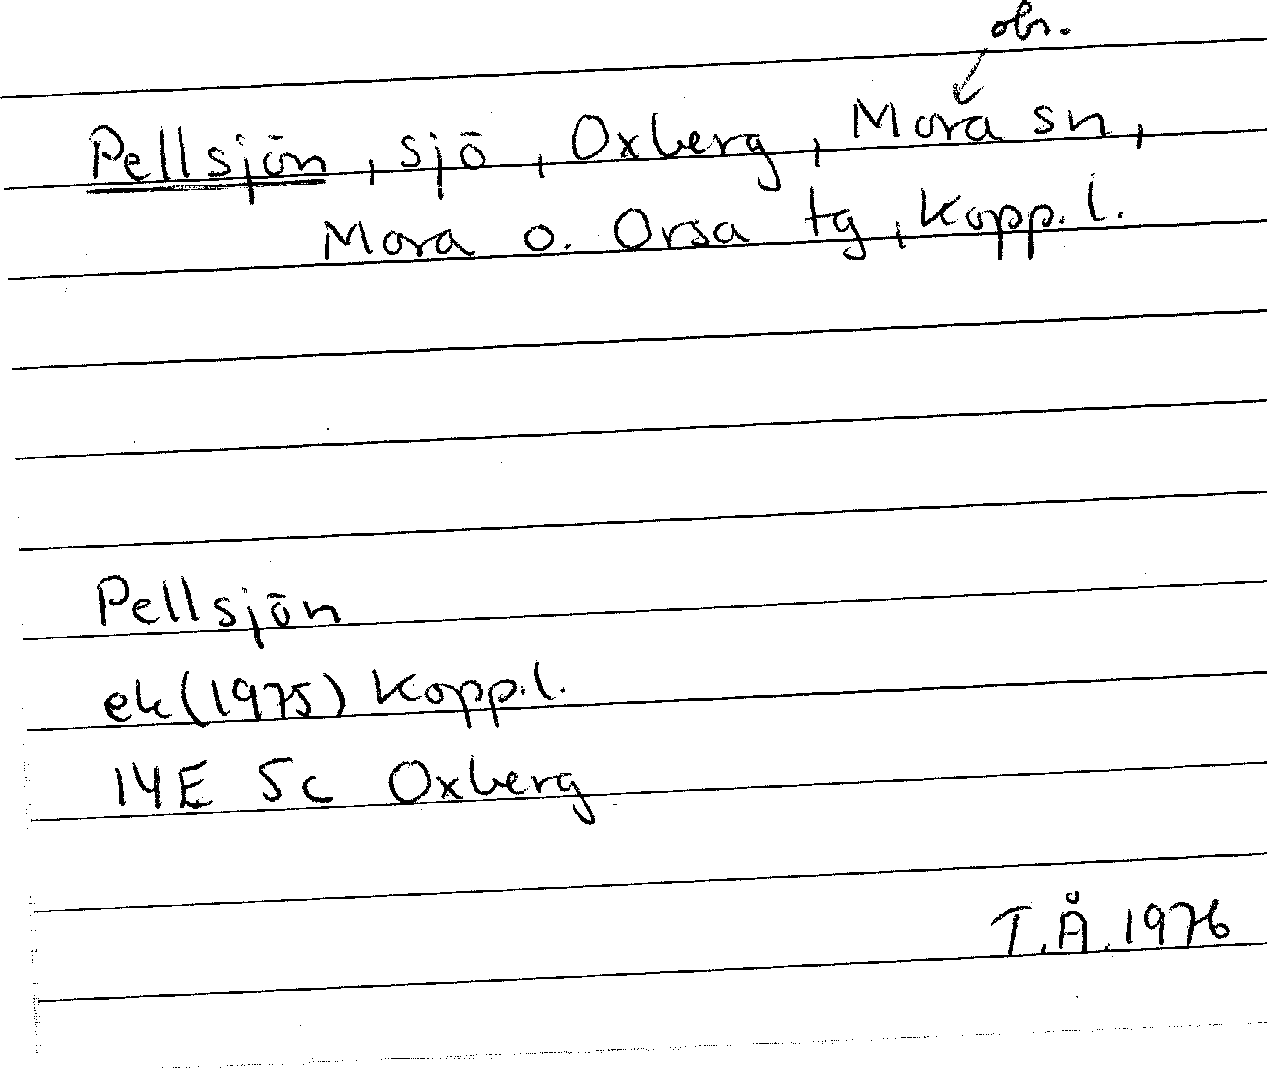 obs.
Pellsjön, sjö, Oxberg, Mora sn,
Mora o. Orsa tg, Kopp. l.
Pellsjön
ek (1975) Kopp.l.
14E 5c Oxberg
T.Å. 1976